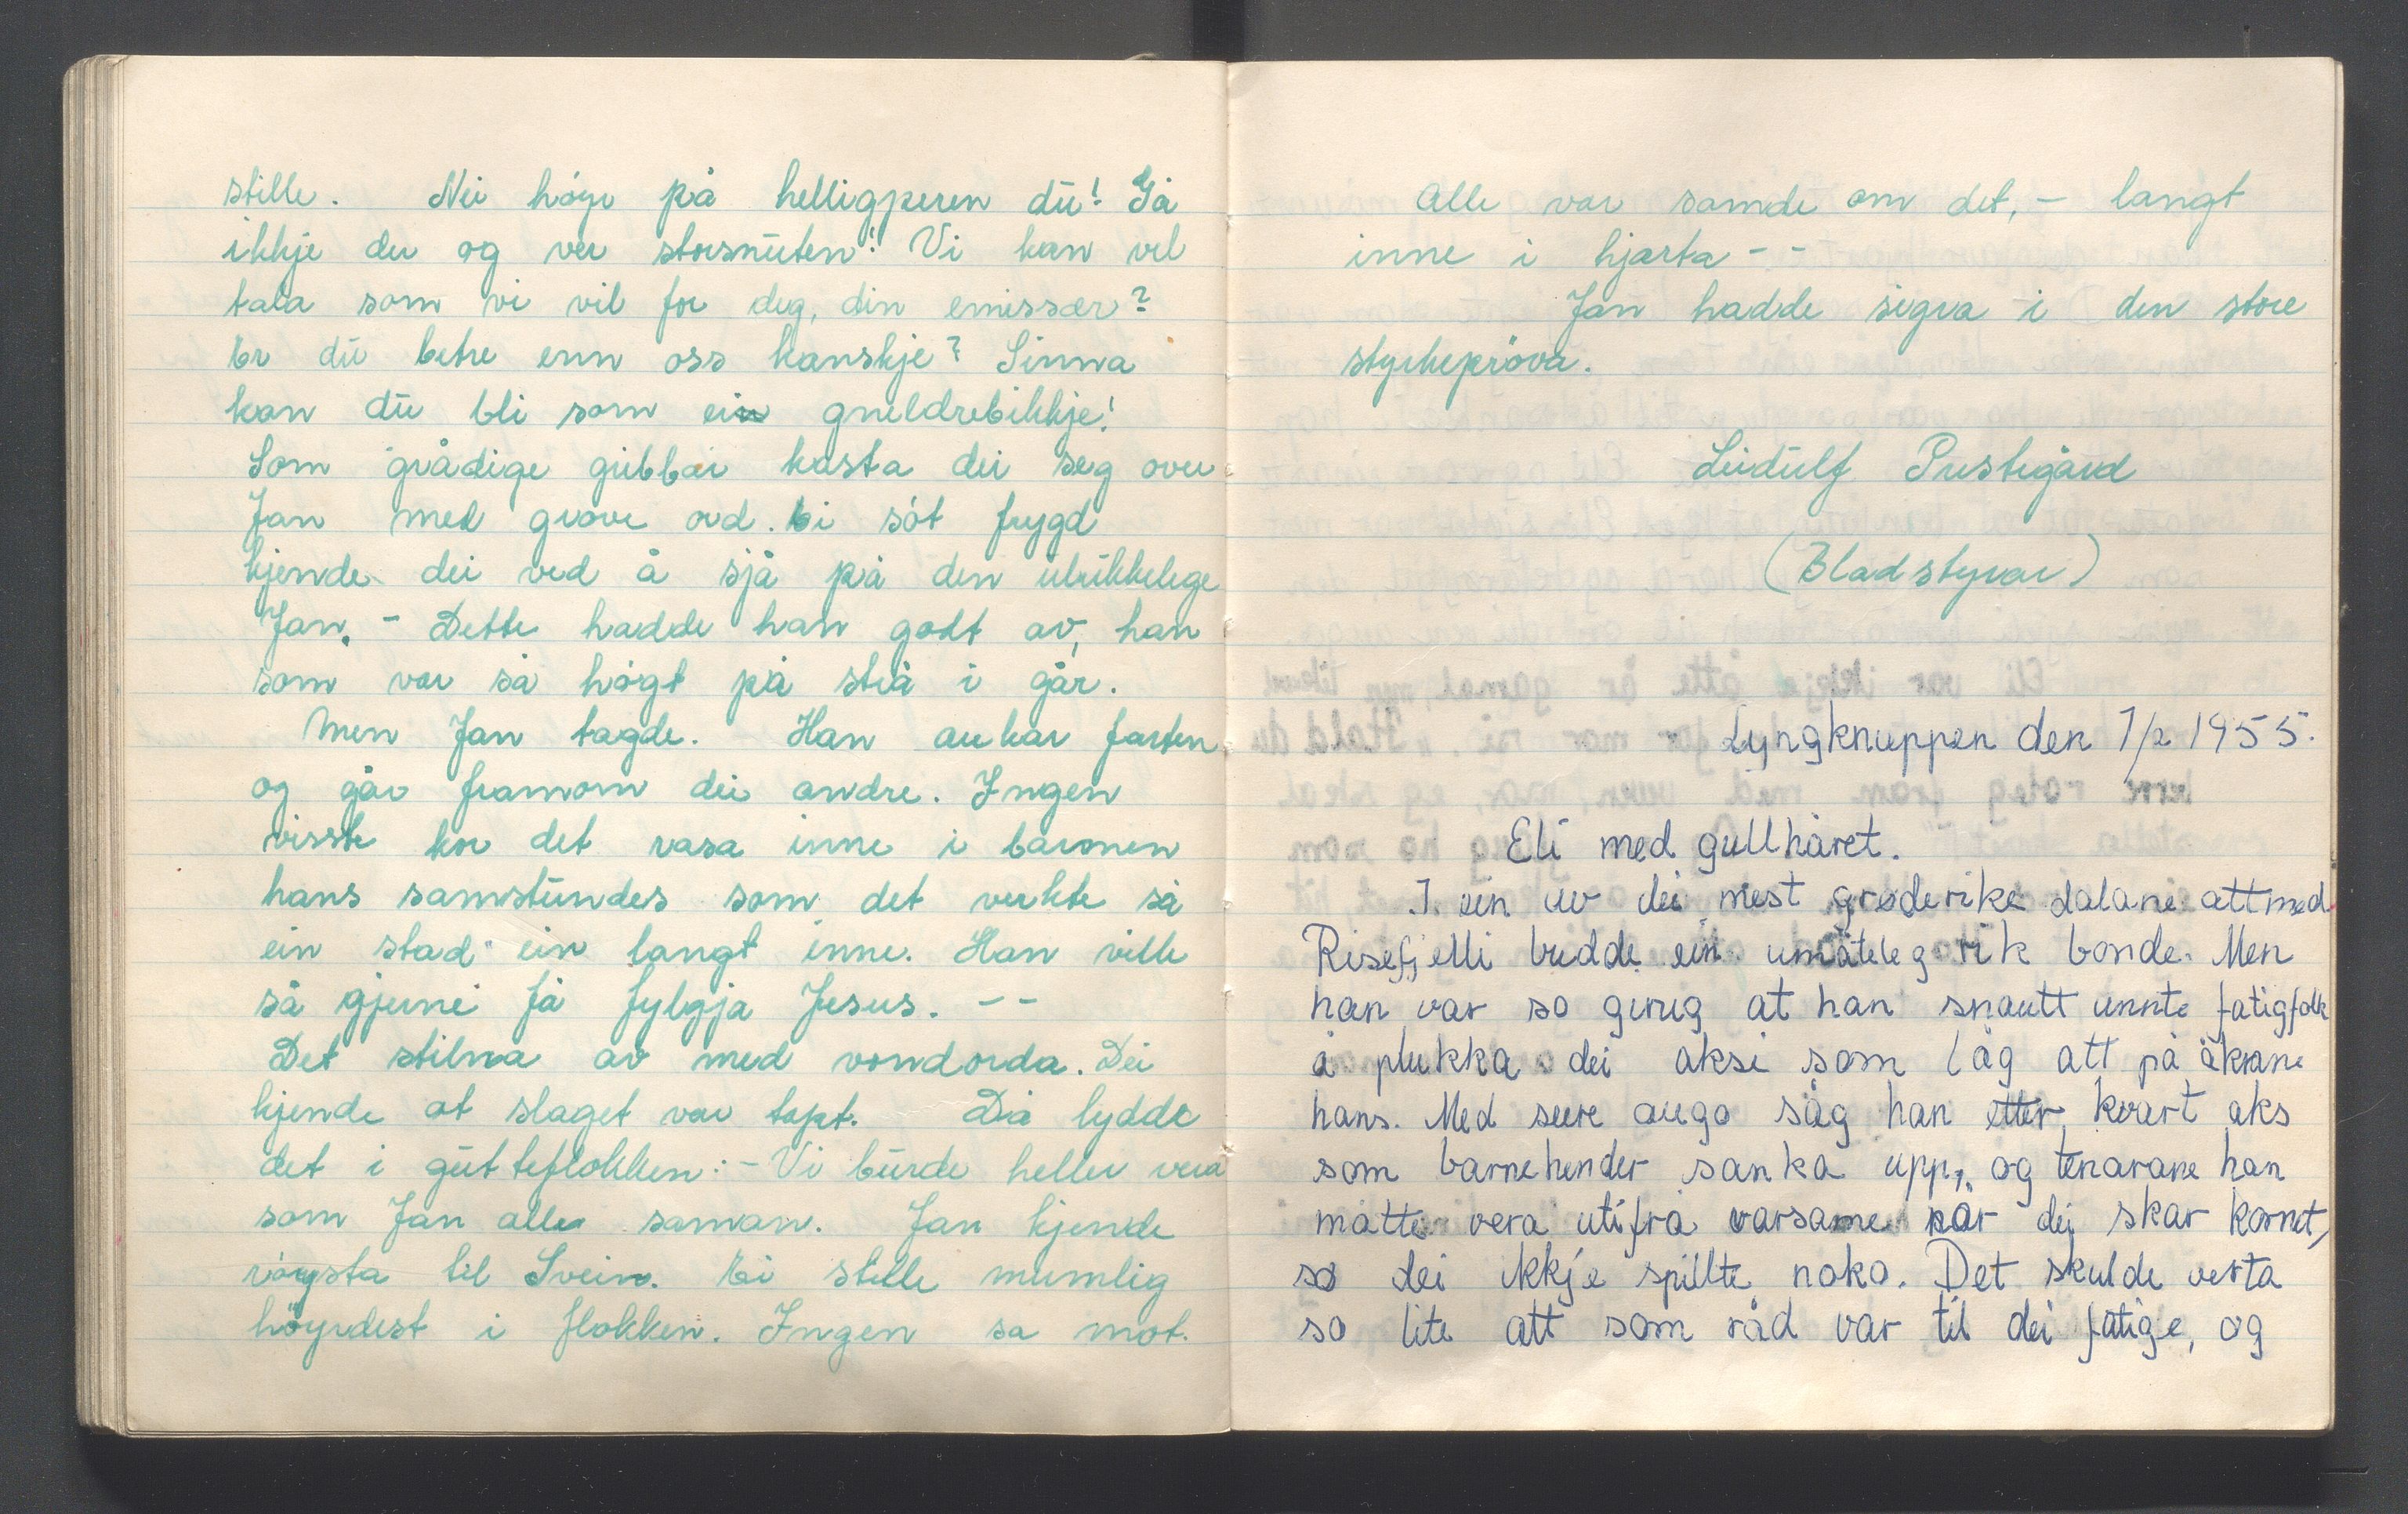 stille. Nei höyr på helligperen du! Gå
ikkje du og ver storsnuten! Vi kan vel
tala som vi vil for deg, din emissær?
Er du betre enn oss kanskje? Sinna
kan du bli som ein gneldrebikkje!
Som grådige gribbar kasta dei seg over
Jan med grove ord. Ei söt frygd
kjende dei ved å sjå på den ulukkelege
Jan. - Dette hadde han godt av, han
som var så högt på strå i går.
Men Jan tagde. Han aukar farten
og går framom dei andre. Ingen
visste kor det rasa inne i barmen
hans samstundes som det verkte så
ein stad ein langt inne. Han ville
så gjerne få fylgja Jesus. - -
Det stilna av med vondorda. Dei
kjende at slaget var tapt. Då lydde
det i guteflokken: - Vi burde heller vera
som Jan alle saman. Jan kjende
röysta til Svein. Ei stille mumlig
höyrdest i flokken. Ingen sa mot.
Alle var samde om det, - langt
inne i hjarta - -
Jan hadde sigra i den store
styrkepröva.
Leidulf Prestegård
(Bladstyrar)
Lyngknuppen den 7/2 1955.
Eli med gullhåret.
I ein av dei mest grøderike dalane attmed
Risefjelli budde ein umåteleg rik bonde. Men
han var so girug at han snautt unnte fatigfolk
å plukka dei aksi som låg att på åkrane
hans. Med seere augo såg han etter kvart aks
som barnehender sanka upp, og tenarane han
måtte vera utifrå varsame når dei skar kornet,
so dei ikkje spillte noko. Det skulde verta
so lite att som råd var til dei fatige, og